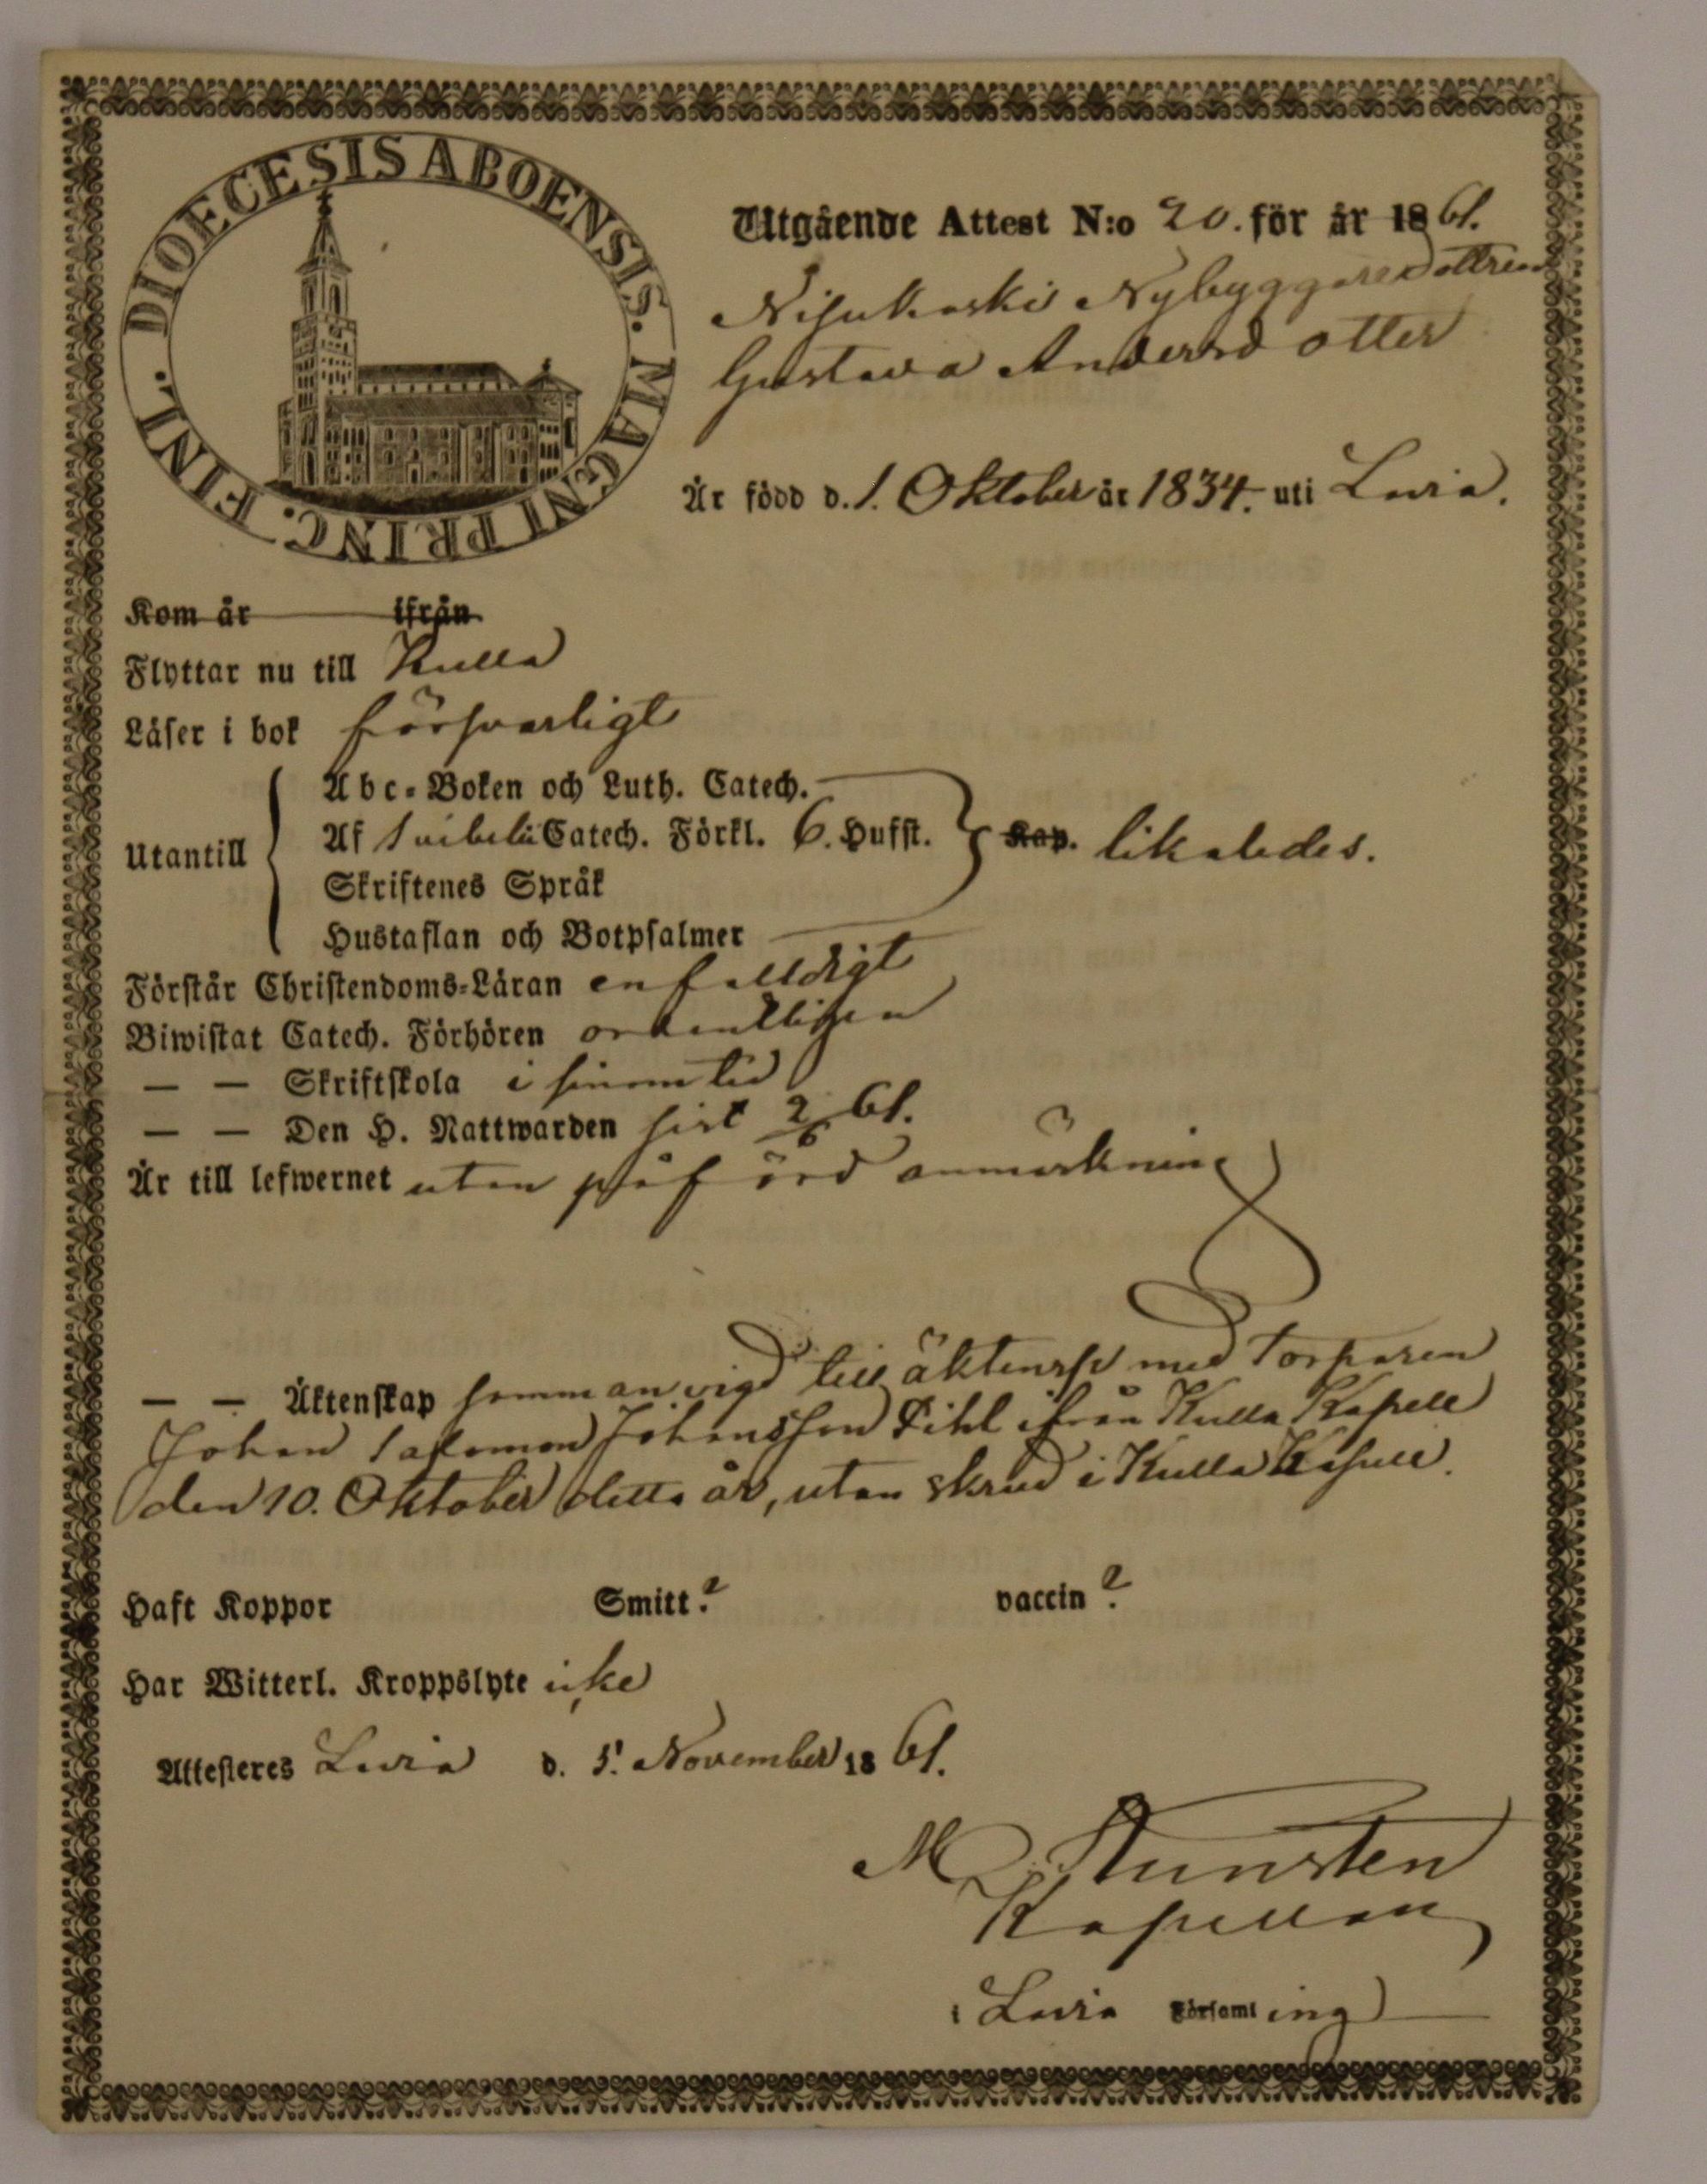 DIOECESIS ABOENSIS. MAGNI PRINC. FINL.
Utgående Attest N:o 20. för år 1861.
Nybyggaredottren
Gustava Andersdotter
Är född d. 1. Oktober år 1834. uti Luvia.
Kom år ifrån
Flyttar nu till Kulla
Läser i bok försvarligt
Abc-Boken och Luth. Catech.
Utantill Af Svibelii Catech. Förkl. 6. Hufst. Kap. likaledes.
Skriftenes Språk
Hustaflan och Botpsalmer
Förstår Christendoms-Läran enfalldigt
Biwistat Catech. Förhören ordentligen
— — Skriftskola i sinom tid
— — Den H. Nattwarden sist 2/6 61.
Är till lefwernet utan påförd anmärkning
— — Äktenskap sammanvigd till äktensk med Torparen
Johan Salomon Johansson ifrån Kulla Kapell
den 10. Oktober detta år, utan skrud i Kulla Kapell.
Haft Koppor Smitt? vaccin?
Har Witterl. Kroppslyte icke
Attesteres Luvia d. 5. November 1861.
M Kunsten
Kapellan
i Luvia Församling